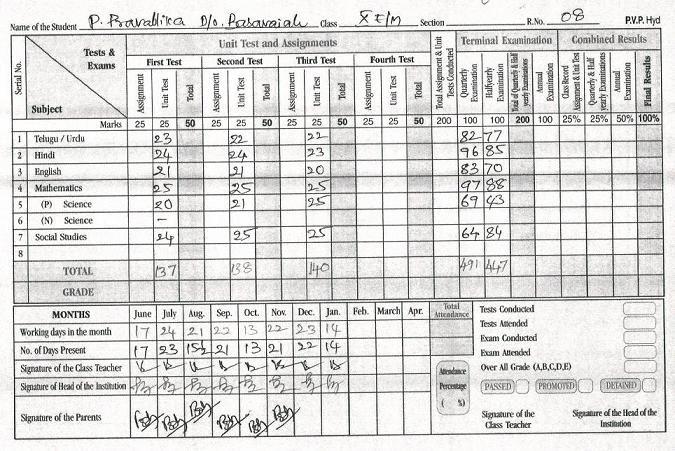 Name of the Student P. Pravallika D/o. Basavaiah Class X E/M Section R.No. 08 P.V.P. Hyd
Serial No. Tests & Exams Subject Unit Test and Assignments Total Assignment & Unit Tests Conducted Terminal Examination Combined Results
First Test Second Test Third Test Fourth Test
Assignment Unit Test Total Assignment Unit Test Total Assignment Unit Test Total Assignment Unit Test Total Quarterly Examination Halfyearly Examination Total of Quarterly & Half yearly Examinations Annual Examination Class Record Assignment & Unit Test Quarterly & Half yearly Examinations Annual Examination Final Results
Marks 25 25 50 25 25 50 25 25 50 25 25 50 200 100 100 200 100 25% 25% 50% 100%
1 Telugu / Urdu 23 22 22 82 77
2 Hindi 24 24 23 96 85
3 English 21 21 20 83 70
4 Mathematics 25 25 25 97 88
5 (P) Science 20 21 25 69 43
6 (N) Science –
7 Social Studies 24 25 25 64 84
8
TOTAL 137 138 140 491 447
GRADE
MONTHS June July Aug. Sep. Oct. Nov. Dec. Jan. Feb. March Apr. Total Attendance
Working days in the month 17 24 21 22 13 22 23 14
No. of Days Present 17 23 15½ 21 13 21 22 14
Signature of the Class Teacher
Signature of Head of the Institution
Signature of the Parents
Attendance Percentage ( %)
Tests Conducted
Tests Attended
Exam Conducted
Exam Attended
Over All Grade (A,B,C,D,E)
PASSED PROMOTED DETAINED
Signature of the Class Teacher
Signature of the Head of the Institution